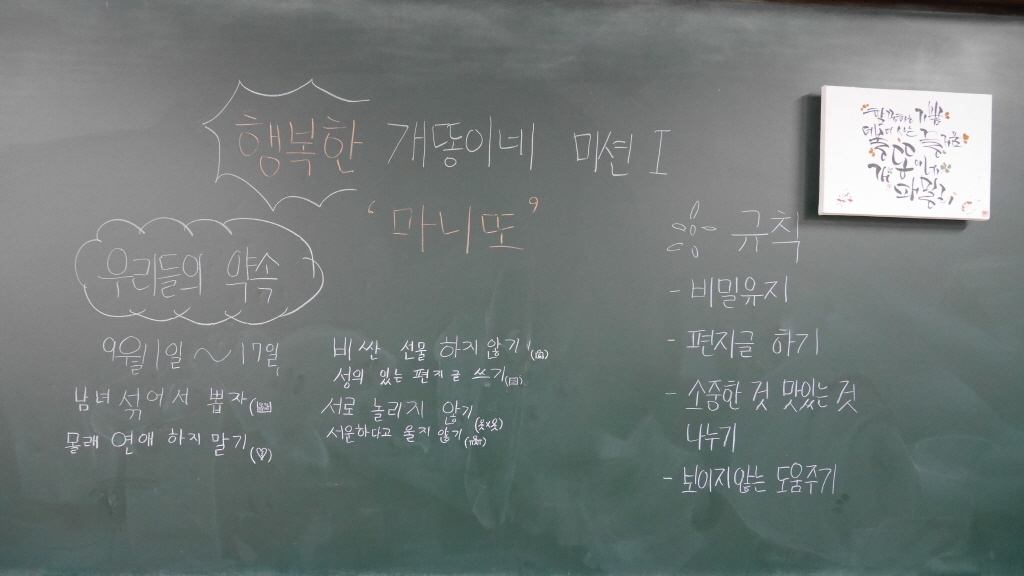 행복한 개똥이네 미션 I
‘마니또’
우리들의 약속
9월 1일 ~ 17일
남녀 섞어서 뽑자
몰래 연애 하지 말기 (♡)
비싼 선물 하지 않기!
성의 있는 편지글 쓰기
서로 놀리지 않기 (ㅈㅈ)
서운하다고 울지 않기
규칙
- 비밀유지
- 편지글 하기
- 소중한 것 맛있는 것
나누기
- 보이지않는 도움주기